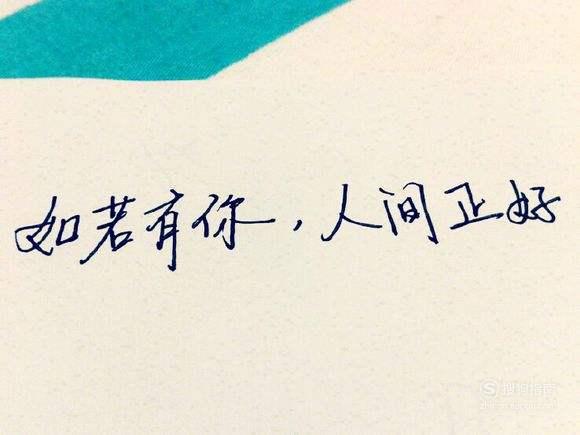 如若有你，人间正好
搜狗指南